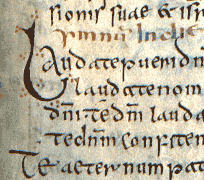 sionis suae & isr
ymnus In die
Laudate pueri dnm
laudate nom
dni. te dm lauda
te dnm confiten
Te aeternum pat